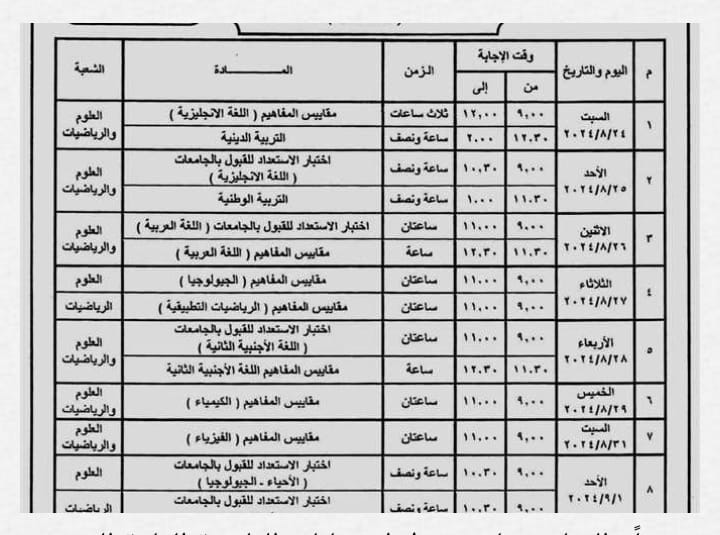 م
اليوم والتاريخ
وقت الإجابة
من
إلى
الزمن
المــــــــادة
الشعبة
١
السبت
٢٠٢٤/٨/٢٤
٩,٠٠
١٢,٠٠
ثلاث ساعات
مقاييس المفاهيم ( اللغة الانجليزية )
العلوم
والرياضيات
١٢,٣٠
٢,٠٠
ساعة ونصف
التربية الدينية
٢
الأحد
٢٠٢٤/٨/٢٥
٩,٠٠
١٠,٣٠
ساعة ونصف
اختبار الاستعداد للقبول بالجامعات
( اللغة الانجليزية )
العلوم
والرياضيات
١١,٣٠
١,٠٠
ساعة ونصف
التربية الوطنية
٣
الاثنين
٢٠٢٤/٨/٢٦
٩,٠٠
١١,٠٠
ساعتان
اختبار الاستعداد للقبول بالجامعات ( اللغة العربية )
العلوم
والرياضيات
١١,٣٠
١٢,٣٠
ساعة
مقاييس المفاهيم ( اللغة العربية )
٤
الثلاثاء
٢٠٢٤/٨/٢٧
٩,٠٠
١١,٠٠
ساعتان
مقاييس المفاهيم ( الجيولوجيا )
العلوم
٩,٠٠
١١,٠٠
ساعتان
مقاييس المفاهيم ( الرياضيات التطبيقية )
الرياضيات
٥
الأربعاء
٢٠٢٤/٨/٢٨
٩,٠٠
١١,٠٠
ساعتان
اختبار الاستعداد للقبول بالجامعات
( اللغة الأجنبية الثانية )
العلوم
والرياضيات
١١,٣٠
١٢,٣٠
ساعة
مقاييس المفاهيم اللغة الأجنبية الثانية
٦
الخميس
٢٠٢٤/٨/٢٩
٩,٠٠
١١,٠٠
ساعتان
مقاييس المفاهيم ( الكيمياء )
العلوم
والرياضيات
٧
السبت
٢٠٢٤/٨/٣١
٩,٠٠
١١,٠٠
ساعتان
مقاييس المفاهيم ( الفيزياء )
العلوم
والرياضيات
٨
الأحد
٢٠٢٤/٩/١
٩,٠٠
١٠,٣٠
ساعة ونصف
اختبار الاستعداد للقبول بالجامعات
( الأحياء - الجيولوجيا )
العلوم
٩,٠٠
١٠,٣٠
ساعة ونصف
اختبار الاستعداد للقبول بالجامعات
الرياضيات